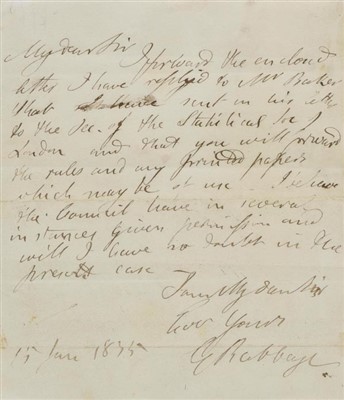 My dear Sir I forward the enclosed
letter I have replied to Mr Baker
that sent in his
to the Sec. of the Statistical Soc of
London and that you will forward
the rules and any printed papers
which may be of use I believe
the Council have in several
instances given permission and
will I have no doubt in the
present case
I am My dear Sir
Yours
C Babbage
15 Jan 1835